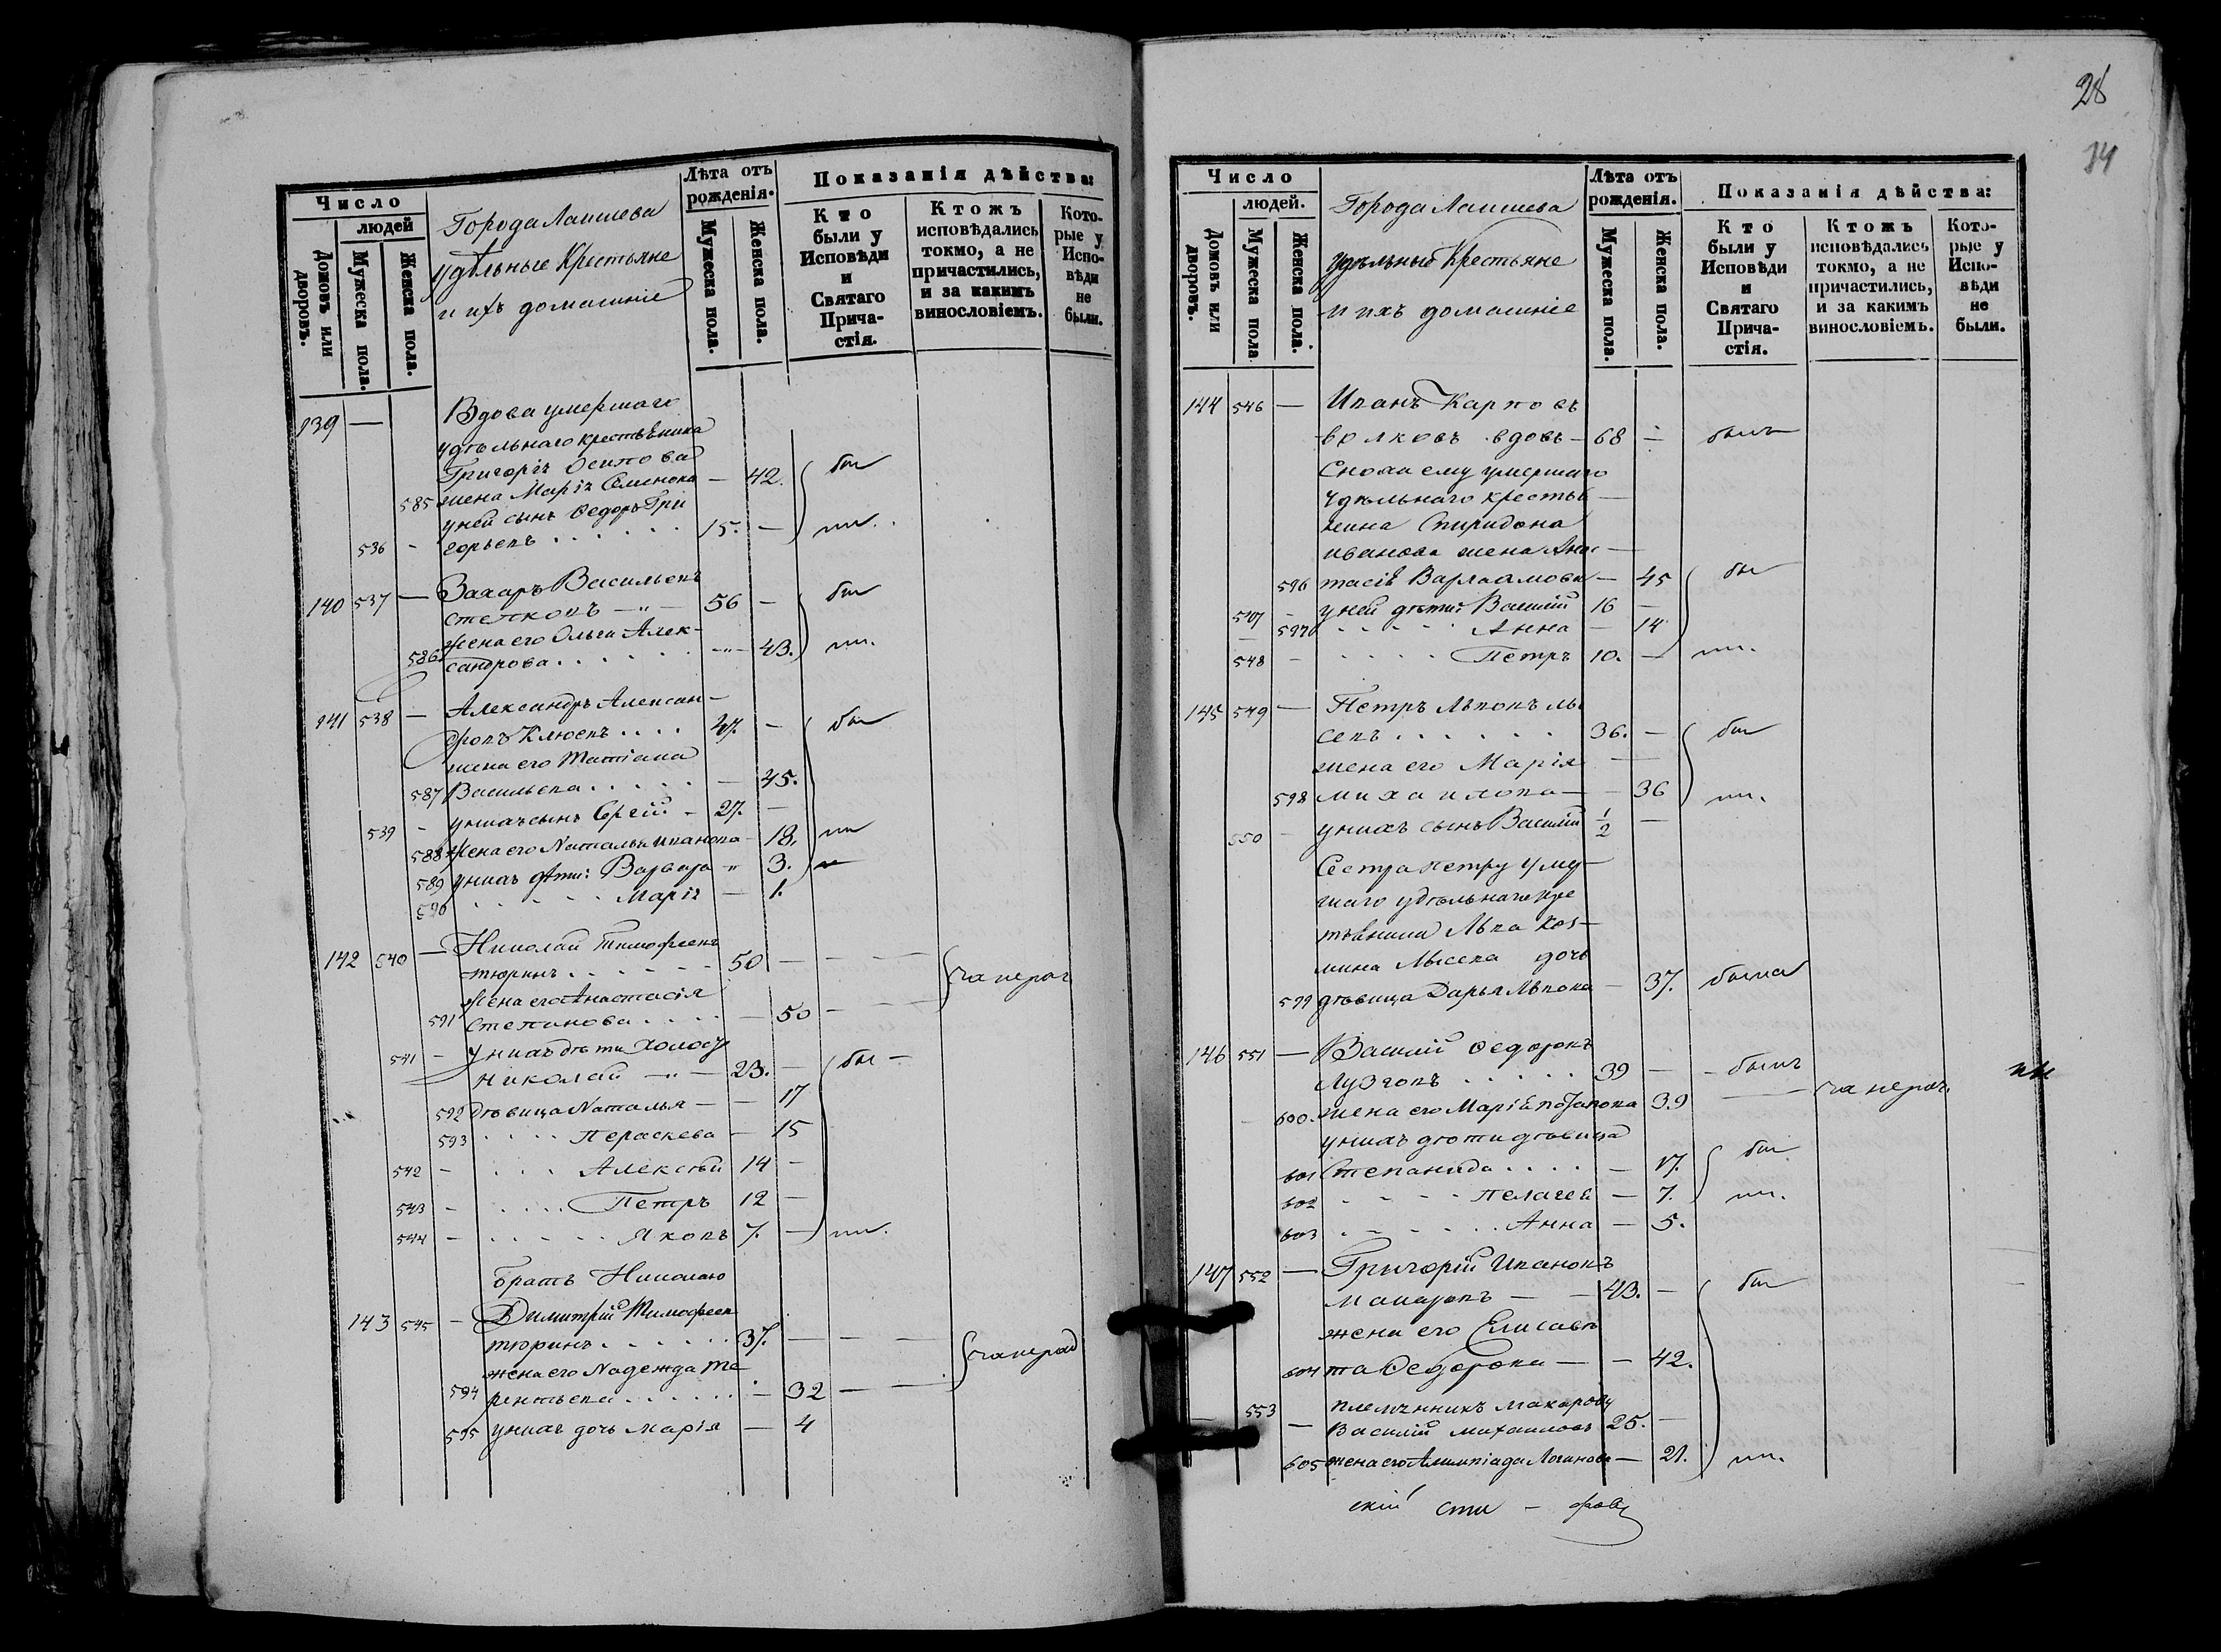 Число
людей
Домовъ или дворовъ.
Мужеска пола.
Женска пола.
Города Лаишева
удѣльные Крестьяне
и ихъ домашніе
Лѣта отъ рожденія.
Мужеска пола.
Женска пола.
Показанія дѣйства:
Кто были у Исповѣди и Святаго Прича-стія.
Ктожъ исповѣдались токмо, а не причастились, и за какимъ винословіемъ.
Кото-рые у Испо-вѣди не были.
139 — Вдова умершаго
удѣльнаго крестьянина
Григорія Осипова
585 жена Марія Семенова — 42. бы
у ней сынъ Ѳедоръ Гри
536 - горьевъ . . . . . . 15. — ли.
140 537 — Захаръ Васильевъ
степковъ —"— 56 — бы
Жена его Ольга Алек-
586 сандрова . . . . . . —"— 43. ли.
141 538 — Александръ Алексан-
дровъ Клюевъ . . . . 47. — бы
жена его Татіана
587 Васильева . . . . . — 45.
539 - у нихъ сынъ Сргій - 27. —
588 Жена его Наталья Иванова — 18. ли
589 у нихъ дѣти: Варвара " 3.
590 . . . . . . Марія — 1.
142 540 — Николай Тимофеевъ
тюринъ . . . . . . 50 — —
Жена его Анастасія
591 Степанова . . . . — 50 —
541 - у нихъ дѣти холосту
Николай —"— 23. — бы —
592 Дѣвица Наталья — — 17
593 . . . . Пераскева — 15
542 - . . . Алексѣй 14 —
543 - . . . . Петръ 12 —
544 - . . . . . Яковъ 7. — ли.
братъ Николаю
143 545 - Димитрій Тимофеев
тюринъ . . . . . . 37. — —
жена его Надежда Те
594 рентьева . . . . . . — 32 — —
595 у нихъ дочь Марія — 4
28
34
Число
людей.
Домовъ или дворовъ.
Мужеска пола
Женска пола.
Города Лаишева
удѣльные Крестьяне
и ихъ домашніе
Лѣта отъ рожденія.
Мужеска пола.
Женска пола.
Показанія дѣйства:
Кто были у Исповѣди и Святаго Прича-стія.
Ктожъ исповѣдались токмо, а не причастились, и за какимъ винословіемъ.
Кото-рые у Испо-вѣди не были.
144 546 — Иванъ Карповъ
волковъ вдовъ — 68 — былъ
Сноха ему умершаго
Удѣльнаго крестья —
нина Спиридона
иванова жена Анас —
596 тасія Варлаамова — 45 бы
547 - у ней дѣти: Василій 16 —
597 - . . . . . Анна — 14
548 - . . . . Петръ 10. — ли.
145 549 — Петръ Львовъ лы
севъ . . . . . . 36. — бы
жена его Марія —
598 михаилова — — 36 ли.
550 - у нихъ сынъ Василій 1/2 —
Сестра петру уме
шаго удѣльнаго кре
тьянина Льва Коз-
мина Лысева дочь
599 дѣвица Дарья Львова — 37. была
146 551 — Василій Ѳедоровъ
Лузговъ . . . . . 39 — - былъ
600. жена его Марія потапова 39 —
у нихъ дѣти дѣвица
601 Степанида . . . . — 17. бы
602 - - - - Пелагея — 7. ли.
603 . . . . . . Анна — 5.
147 552 — Григорій Ивановъ
макаровъ — — 43. — бы
жена его Елисаве
604 та Ѳедорова — — 42.
553 племянникъ макарову
— Василій михаиловъ 25. —
605 жена его Алимпіада Логинова — 21. ли.
скій сти —